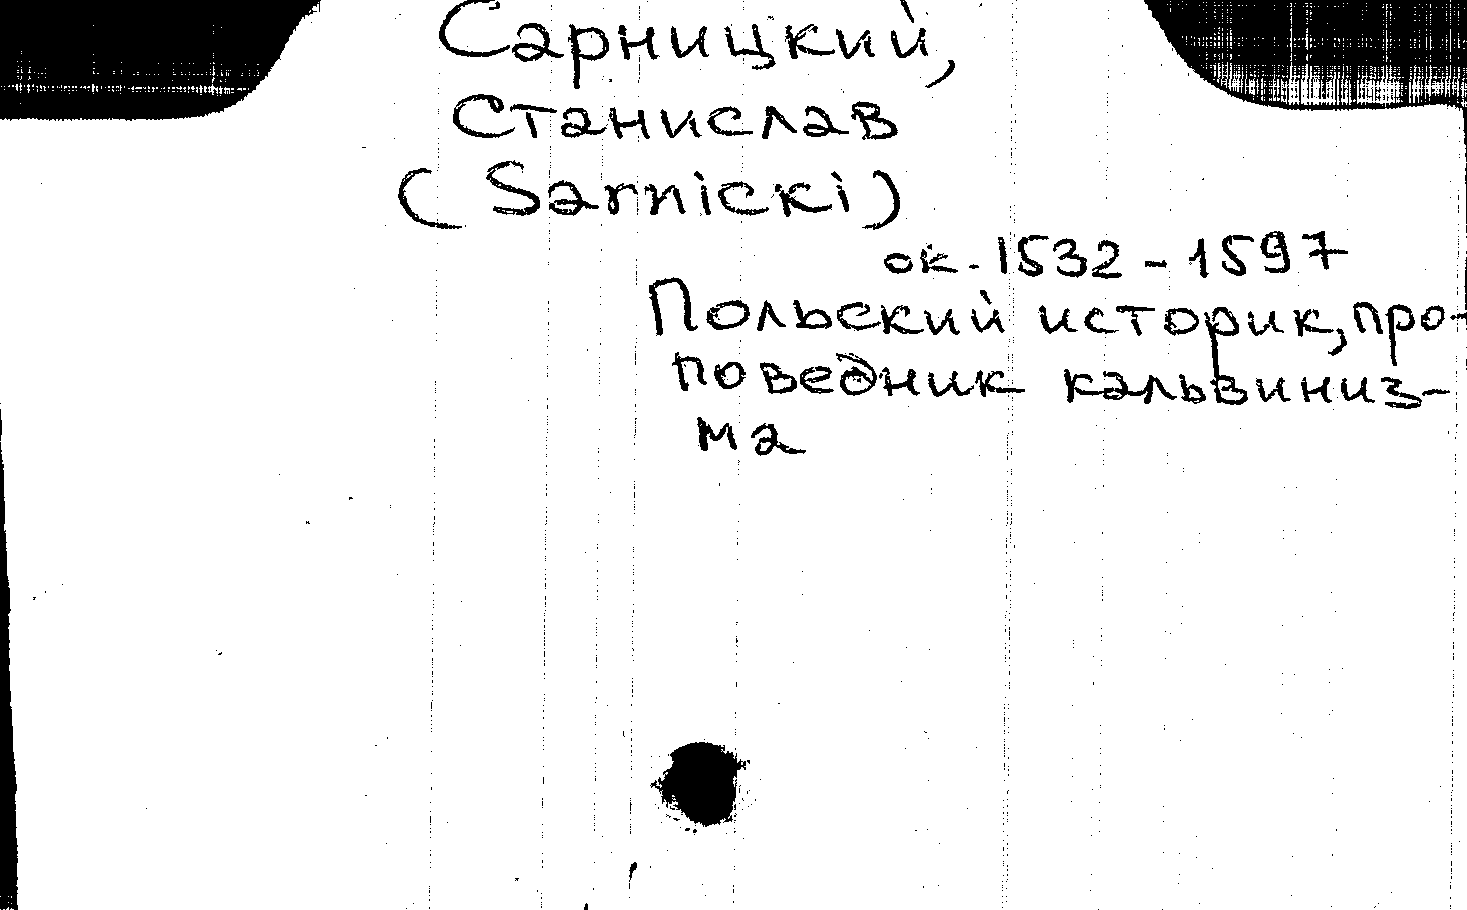 Сарницкий,
Станислав
(Sarnicki)
ок. 1532 - 1597
Польский историк, про-
поведник кальвиниз-
ма